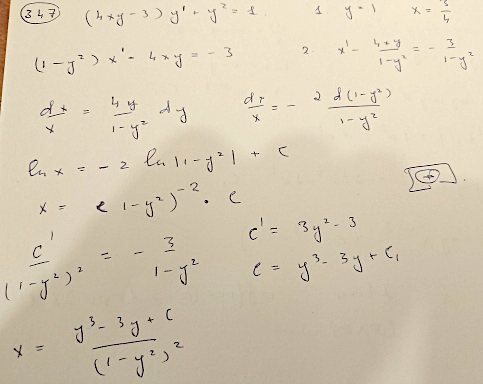 347 (4xy-3) y' + y² = 1 1 y = 1 x = 3/4
(1-y²) x' - 4xy = -3 2. x' - 4xy/(1-y²) = - 3/(1-y²)
dx/x = 4y/(1-y²) dy dx/x = - 2 d(1-y²)/(1-y²)
ln x = - 2 ln |1-y²| + C
x = (1-y²)⁻² · C
C'/(1-y²)² = - 3/(1-y²) C' = 3y² - 3
C = y³ - 3y + C₁
x = (y³ - 3y + C)/(1-y²)²